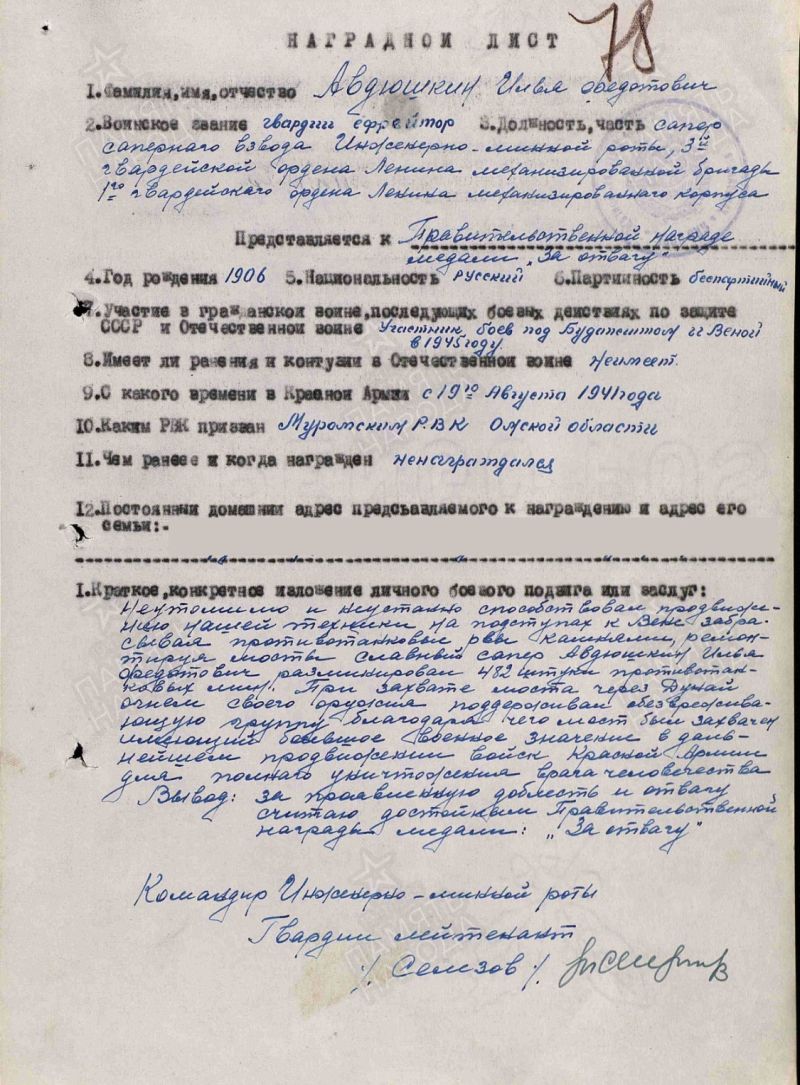 78
НАГРАДНОЙ ЛИСТ
1.Фамилия,имя,отчество Авдюшкин Илья Федотович
2.Воинское звание гвардии ефрейтор 3.Должность,часть сапер
саперного взвода Инженерно-минной роты, 3й
гвардейской ордена Ленина механизированной бригады
1го гвардейского ордена Ленина механизированного корпуса
Представляется к Правительственной награде
медали „За отвагу"
4.Год рождения 1906 5.Национальность русский 6.Партийность беспартийный
7.Участие в гражданской войне,последующих боевых действиях по защите
СССР и Отечественной войне Участник боев под Будапештом и Веной
в 1945 году.
8.Имеет ли ранения и контузии в Отечественной войне неимеет.
9.С какого времени в Красной Армии с 19го Августа 1941 года
10.Каким РВК призван Муромским Р.В.К Омской области
11.Чем ранее и когда награжден ненаграждался
12.Постоянный домашний адрес предсьавляемого к награждению и адрес его
семьи:-
I.Краткое,конкретное изложение личного боевого подвига или заслуг:
Неутомимо и неустанно способствовал продвиже-
нию нашей техники на подступах к Вене забра-
сывая противотанковый рвы камнями, ремон-
тируя мосты славный сапер Авдюшкин Илья
Федотович разминировал 482 штуки противотан-
ковых мин. При захвате моста через Дунай
огнем своего оружия поддерживал обезврежива-
ющую группу благодаря чего мост был захвачен
имеющий большое военное значение в даль-
нейшем продвижении войск Красной Армии
для полного уничтожения врага человечества
Вывод: за проявленную доблесть и отвагу
считаю достойным Правительственной
награды медали: „За отвагу"
Командир Инженерно-минной роты
Гвардии лейтенант
/. Селезов /.